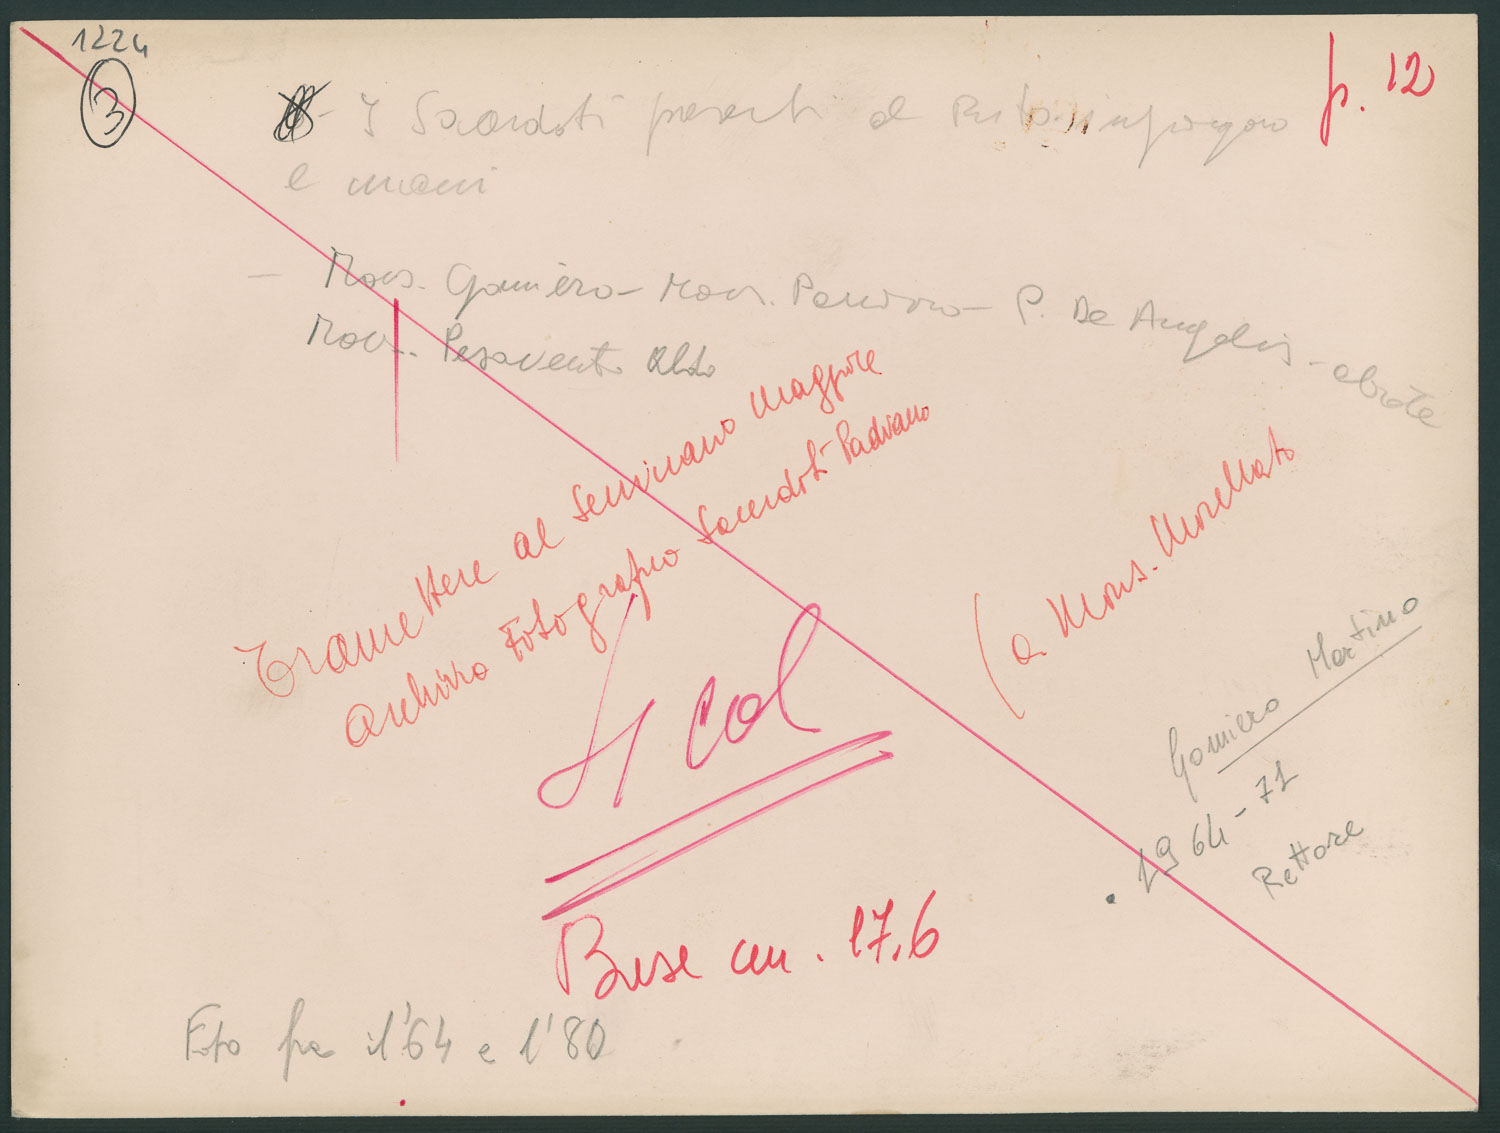 1224
3
p. 12
- I Sacerdoti presenti al
e mani
- Mons. Gomiero - Mons. - P. De Angelis - abate
Mons. Pesavento Aldo
Tramettere al Seminario Maggiore
Archivio Fotografico Sacerdoti Padovano
(a Mons. Morellato
4 col
Gomiero Martino
1964-71
Rettore
Base cm. 17,6
Foto fra il '64 e l'80